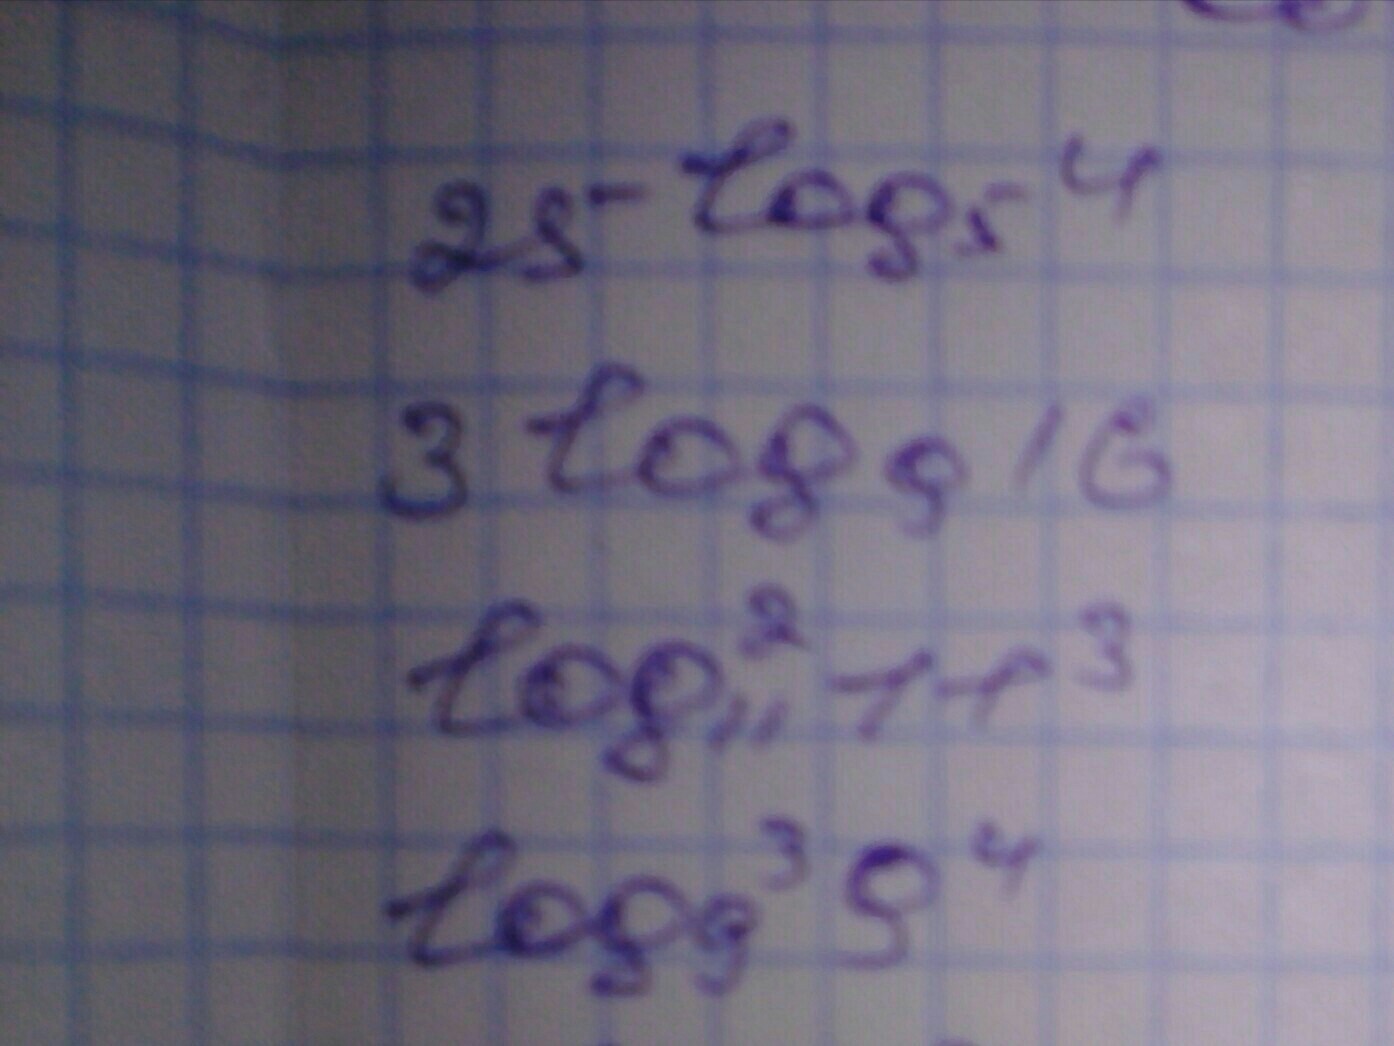 25^-log_5 4
3 log_9 16
log_11^2 11^3
log_9^3 9^4